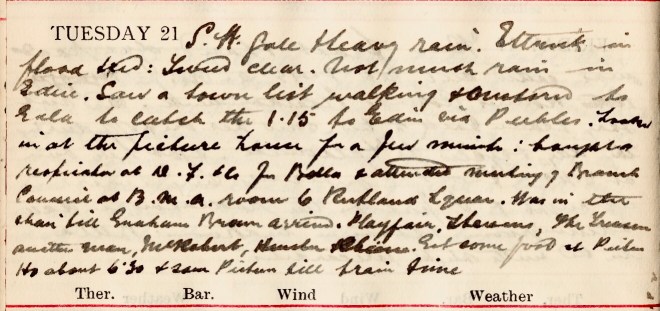 TUESDAY 21 S.W. gale & heavy rain. Ettrick in
flood & red: Tweed clear. Not much rain in
Edin. Saw a town list walking & motored to
Gala to catch the 1.15 to Edin via Peebles. Looked
in at the picture house for a few minutes: bought a
respirator at D. F. & Co for Bella & attended meeting of Branch
Council at B.M.A. room 6 Rutland Square. Was in the
chair till Graham Brown arrived. Playfair, Stevens,
another man, McRobert, Hunter. Got some food at Picture
Ho about 6.30 & saw Pictures till train time
Ther. Bar. Wind Weather